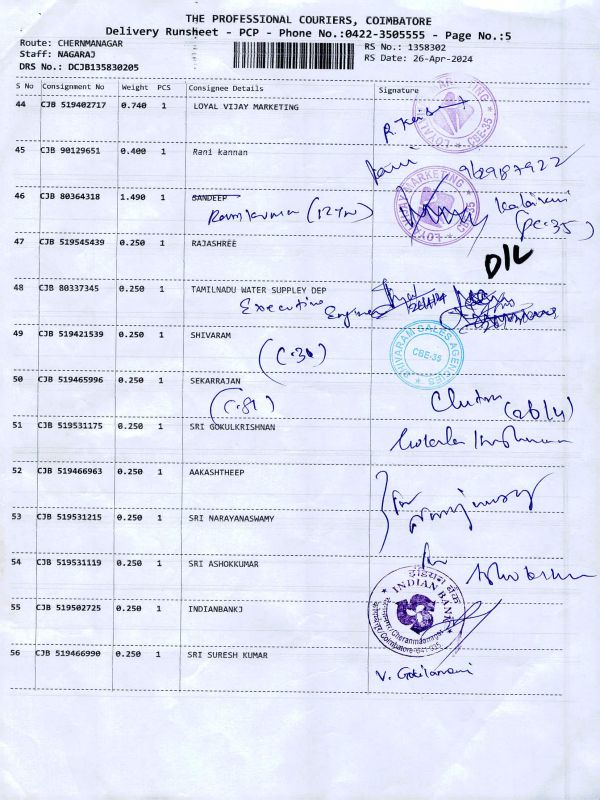 THE PROFESSIONAL COURIERS, COIMBATORE
Delivery Runsheet - PCP - Phone No.:0422-3505555 - Page No.:5
Route: CHERNMANAGAR
Staff: NAGARAJ
DRS No.: DCJB135830205
RS No.: 1358302
RS Date: 26-Apr-2024
S No Consignment No Weight PCS Consignee Details Signature
44 CJB 519402717 0.740 1 LOYAL VIJAY MARKETING
45 CJB 90129651 0.400 1 Rani kannan
Rani
46 CJB 80364318 1.490 1 SANDEEP
Ramkumar
(PC-35)
47 CJB 519545439 0.250 1 RAJASHREE
D/L
48 CJB 80337345 0.250 1 TAMILNADU WATER SUPPLEY DEP
Executive Engineer
49 CJB 519421539 0.250 1 SHIVARAM
SHIVARAM SALES AGENCIES
CBE-35
50 CJB 519465996 0.250 1 SEKARRAJAN
51 CJB 519531175 0.250 1 SRI GOKULKRISHNAN
52 CJB 519466963 0.250 1 AAKASHTHEEP
53 CJB 519531215 0.250 1 SRI NARAYANASWAMY
54 CJB 519531119 0.250 1 SRI ASHOKKUMAR
55 CJB 519502725 0.250 1 INDIANBANKJ
INDIAN BANK
56 CJB 519466990 0.250 1 SRI SURESH KUMAR
V. Gokilamani